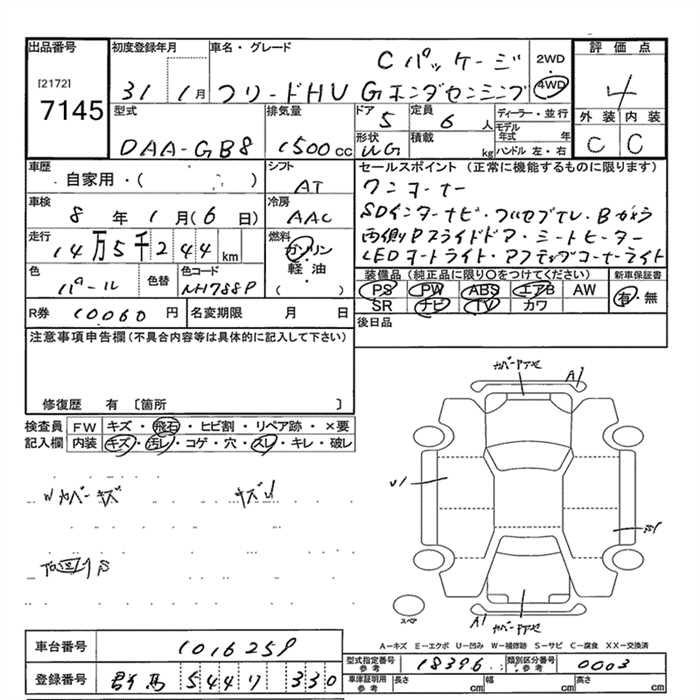 出品番号
[2172]
7145
初度登録年月
31 1月
車名・グレード
Cパッケージ
フリードHV Gホンダセンシング
2WD
4WD
評価点
4
外装 内装
C C
型式
DAA-GB8
排気量
1500cc
ドア
5
定員
6人
形状
積載
kg
ディーラー・並行
モデル年式 年
ハンドル 左・右
車歴
自家用・( )
シフト
AT
車検
8年1月(6日)
冷房
AAC
走行
14万5千244km
燃料
ガソリン
軽・油
( )
色
パール
色替
色コード
NH788P
R券
10060円
名変期限 月 日
セールスポイント(正常に機能するものに限ります)
ワンオーナー
SDインターナビ・フルセグTV・Bカメラ
両側Pスライドドア・シートヒーター
LEDオートライト・アクティブコーナーライト
装備品(純正品に限り○をつけてください)
PS PW ABS エアB AW
SR ナビ TV カワ
新車保証書
有・無
後日品
注意事項申告欄(不具合内容等は具体的に記入して下さい)
修復歴 有〔箇所 〕
検査員記入欄
FW キズ・飛石・ヒビ割・リペア跡・×要
内装 キズ・汚レ・コゲ・穴・スレ・キレ・破レ
Wカバーキズ
A1
U1
A1
スペア
A－キズ E－エクボ U－凹み W－補修跡 S－サビ C－腐食 XX－交換済
車台番号
1016259
登録番号
群馬 5447 330
型式指定番号 参考
18396
類別区分番号 参考
0003
車庫証明用 参考
長さ cm
幅 cm
高さ cm